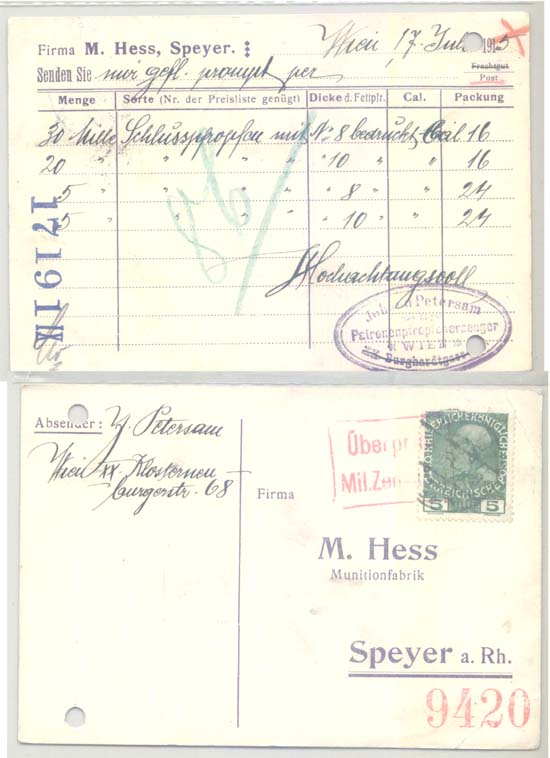 Firma M. Hess, Speyer.
Wien, 17. Juli 1915
Senden Sie mir gefl. prompt per
Frachtgut
Post
Menge Sorte (Nr. der Preisliste genügt) Dicke d. Fettpfr. Cal. Packung
30 Mille Schlusspropfen mit No 8 bedruckt Cal 16
20 " " " " " 10 " 16
5 " " " " " 8 " 24
5 " " " " " 10 " 24
86
Hochachtungsvoll
Petersam
Patronenpfropferzeuger
WIEN
Burghardtgasse
171911K
Absender: J. Petersam
Wien XX. Klosterneu-
burgerstr. 68
Überpr
Mil. Zen
5 5
Firma
M. Hess
Munitionfabrik
Speyer a. Rh.
9420